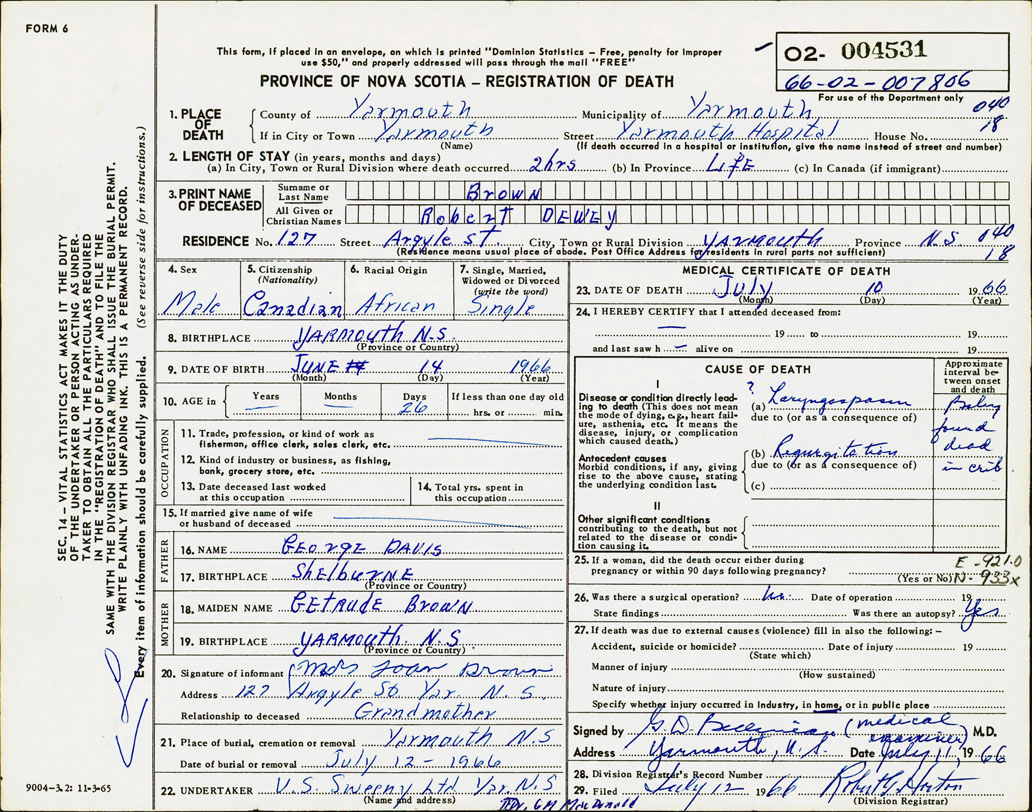 FORM 6
This form, if placed in an envelope, on which is printed "Dominion Statistics – Free, penalty for improper
use $50," and properly addressed will pass through the mail "FREE"
PROVINCE OF NOVA SCOTIA – REGISTRATION OF DEATH
02- 004531
66-02-007806
For use of the Department only
040
18
1. PLACE OF DEATH
County of Yarmouth Municipality of Yarmouth
If in City or Town Yarmouth Street Yarmouth Hospital House No.
(Name) (If death occurred in a hospital or institution, give the name instead of street and number)
2. LENGTH OF STAY (in years, months and days)
(a) In City, Town or Rural Division where death occurred 2hrs (b) In Province LIFE (c) In Canada (if immigrant)
3. PRINT NAME OF DECEASED
Surname or Last Name BROWN
All Given or Christian Names Robert DEWEY
RESIDENCE No. 127 Street Argyle ST. City, Town or Rural Division YARMOUTH Province N.S 040
(Residence means usual place of abode. Post Office Address for residents in rural parts not sufficient) 18
4. Sex
Male
5. Citizenship
(Nationality)
Canadian
6. Racial Origin
African
7. Single, Married,
Widowed or Divorced
(write the word)
Single
8. BIRTHPLACE YARMOUTH N.S.
(Province or Country)
9. DATE OF BIRTH JUNE 14 1966
(Month) (Day) (Year)
10. AGE in Years Months Days If less than one day old
26 hrs. or min.
OCCUPATION
11. Trade, profession, or kind of work as
fisherman, office clerk, sales clerk, etc.
12. Kind of industry or business, as fishing,
bank, grocery store, etc.
13. Date deceased last worked
at this occupation
14. Total yrs. spent in
this occupation
15. If married give name of wife
or husband of deceased
FATHER
16. NAME GEORGE DAVIS
17. BIRTHPLACE SHELBURNE
(Province or Country)
MOTHER
18. MAIDEN NAME GETRUDE BROWN
19. BIRTHPLACE YARMOUTH. N.S
(Province or Country)
20. Signature of informant Mrs Joan Brown
Address 127 Argyle St. Yar. N. S
Relationship to deceased Grandmother
21. Place of burial, cremation or removal Yarmouth N.S
Date of burial or removal July 12 - 1966
22. UNDERTAKER V.S. Sweeny Ltd Yar. N.S
(Name and address)
MacDonald
MEDICAL CERTIFICATE OF DEATH
23. DATE OF DEATH July 10 1966
(Month) (Day) (Year)
24. I HEREBY CERTIFY that I attended deceased from:
— 19 to 19
and last saw h — alive on 19
CAUSE OF DEATH
Approximate
interval be-
tween onset
and death
I
Disease or condition directly lead-
ing to death (This does not mean
the mode of dying, e.g., heart fail-
ure, asthenia, etc. It means the
disease, injury, or complication
which caused death.)
(a) ? Laryngospasm
due to (or as a consequence of)
Baby
found
dead
in crib
Antecedent causes
Morbid conditions, if any, giving
rise to the above cause, stating
the underlying condition last.
(b) Regurgitation
due to (or as a consequence of)
(c)
II
Other significant conditions
contributing to the death, but not
related to the disease or condi-
tion causing it.
25. If a woman, did the death occur either during
pregnancy or within 90 days following pregnancy?
(Yes or No)
E -921.0
N- 933x
26. Was there a surgical operation? No. Date of operation 19
State findings Was there an autopsy? Yes
27. If death was due to external causes (violence) fill in also the following: –
Accident, suicide or homicide? Date of injury 19
(State which)
Manner of injury
(How sustained)
Nature of injury
Specify whether injury occurred in industry, in home, or in public place
Signed by G. D. (medical examiner) M.D.
Address Yarmouth, N.S Date July 11 1966
28. Division Registrar's Record Number
29. Filed July 12 1966 Robt G. Horton
(Division Registrar)
SEC. 14 – VITAL STATISTICS ACT MAKES IT THE DUTY
OF THE UNDERTAKER OR PERSON ACTING AS UNDER-
TAKER TO OBTAIN ALL THE PARTICULARS REQUIRED
IN THE "REGISTRATION OF DEATH" AND TO FILE THE
SAME WITH THE DIVISION REGISTRAR WHO SHALL ISSUE THE BURIAL PERMIT.
WRITE PLAINLY WITH UNFADING INK. THIS IS A PERMANENT RECORD.
Every item of information should be carefully supplied. (See reverse side for instructions.)
9004-3.2: 11-3-65